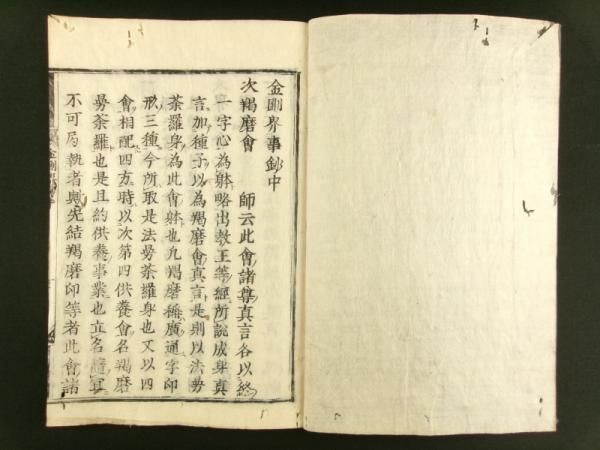 金剛界事鈔中
次羯磨會　師云此會諸尊真言各以終
一字心為躰略出教王等經所説成身真
言加種子以為羯磨會真言是則以法曼
荼羅身為此會躰也凡羯磨稱廣通字印
形三種今所取是法曼荼羅身也又以四
會相配四方時以次第四供養會名羯磨
曼荼羅也是且約供養事業也立名隨宜
不可局執者歟先結羯磨印等者此會諸